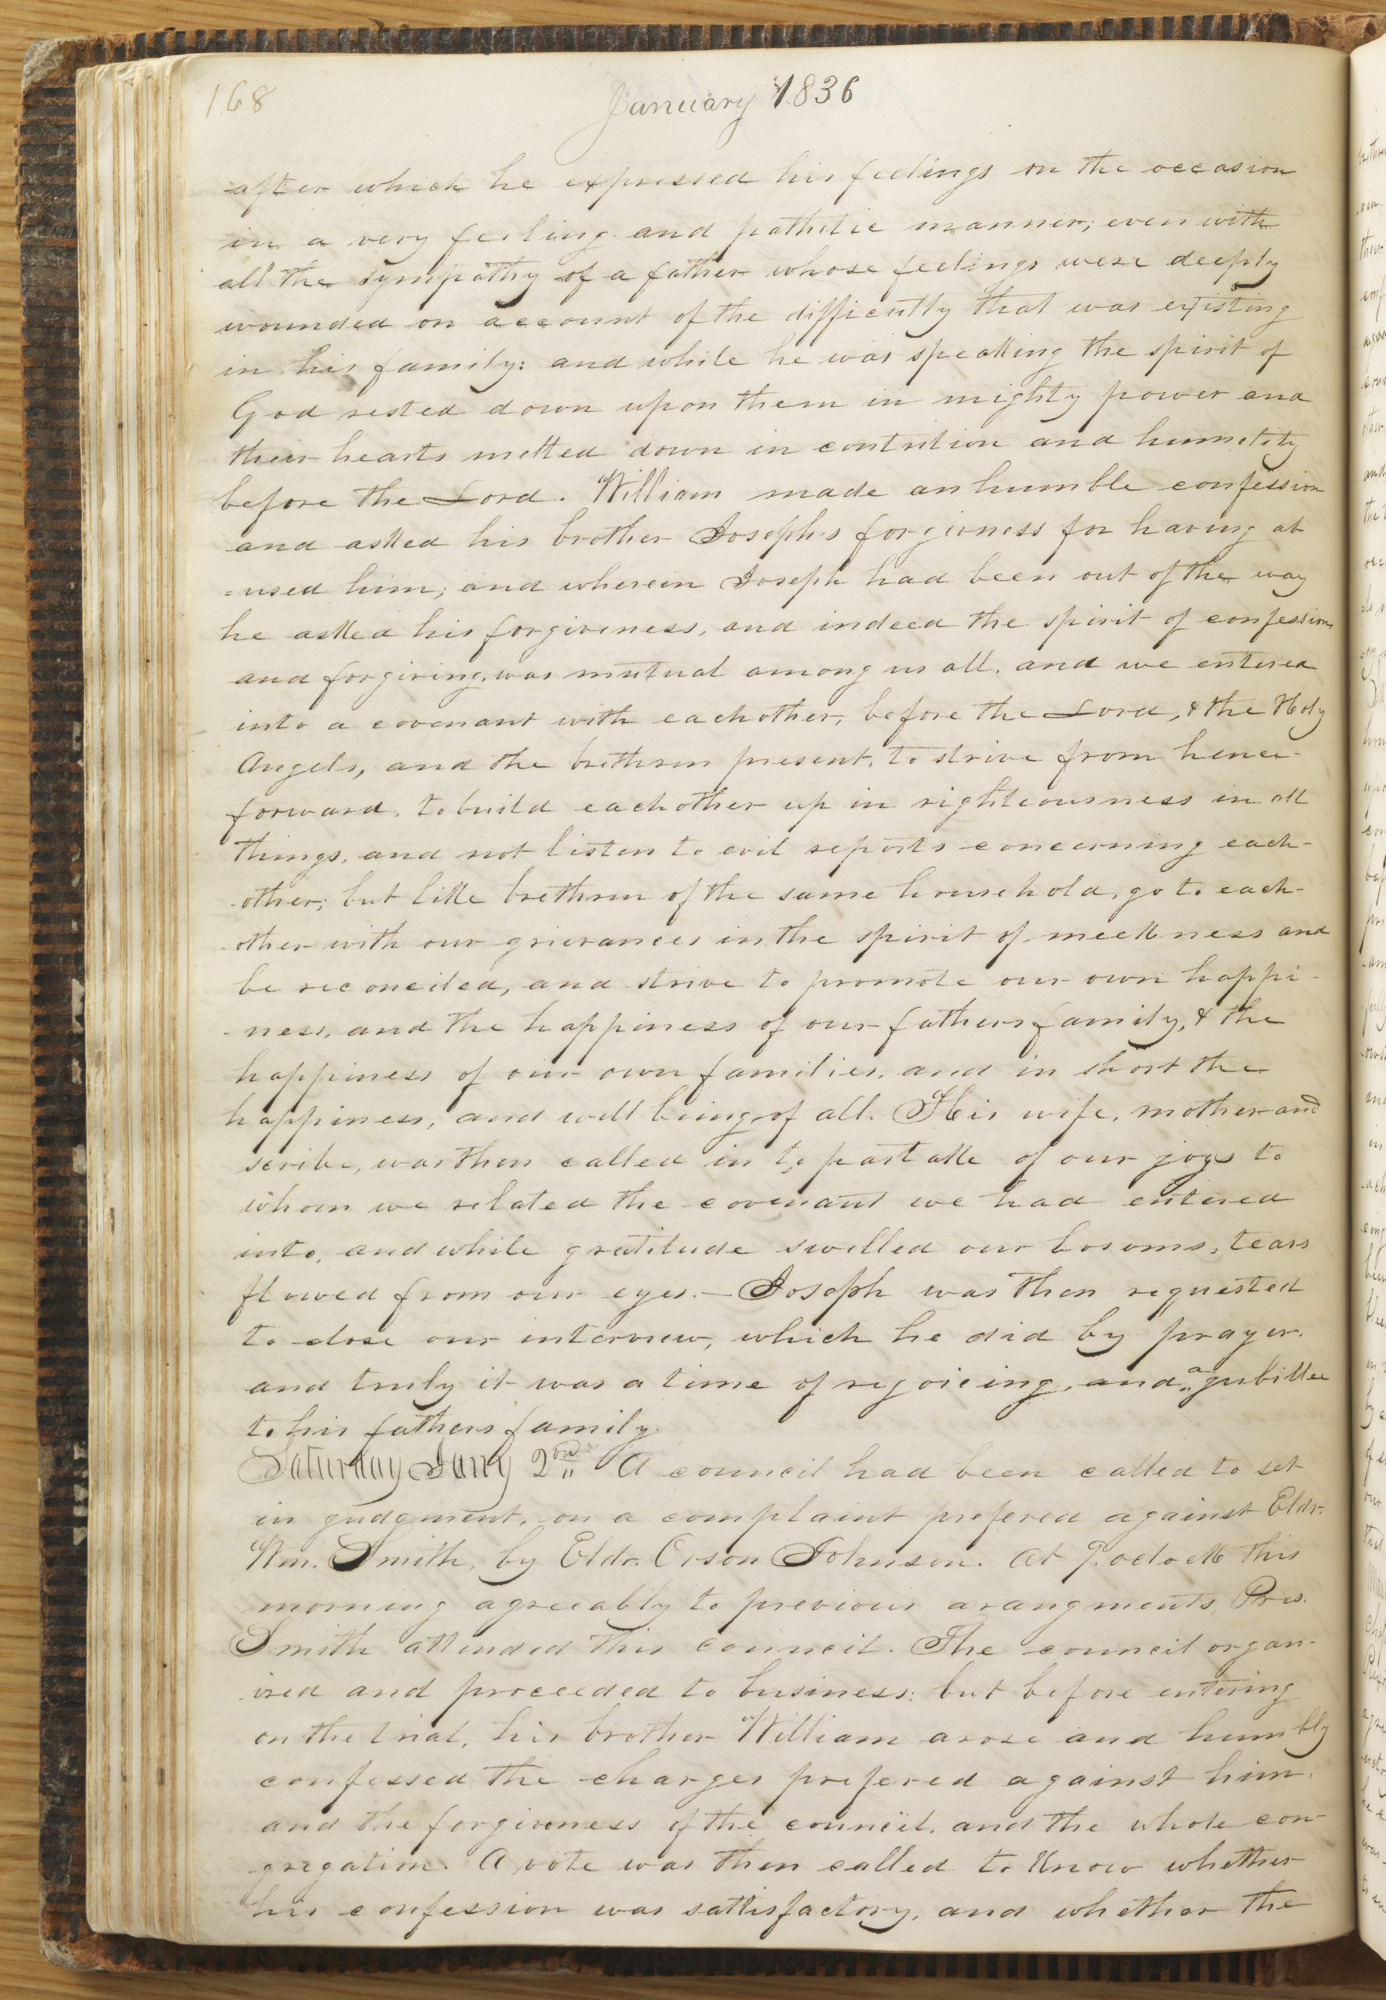 168
January 1836
after which he expressed his feelings on the occasion
in a very feeling and pathetic manner, even with
all the sympathy of a father whose feelings were deeply
wounded on account of the difficulty that was existing
in his family: and while he was speaking the spirit of
God rested down upon them in mighty power and
their hearts melted down in contrition and humility
before the Lord. William made an humble confession
and asked his brother Josephs forgivness for having ab
=used him; and wherein Joseph had been out of the way
he asked his forgiveness, and indeed the spirit of confession
and forgiving, was mutual among us all, and we entered
into a covenant with eachother, before the Lord, & the Holy
Angels, and the brethren present, to strive from hence-
forward, to build eachother up in righteousness in all
things, and not listen to evil reports concerning each-
-other; but like brethren of the same household, go to each-
-other with our grievances in the spirit of meekness and
be reconciled, and strive to promote our own happi-
-ness, and the happiness of our fathers family, & the
happiness of our own families, and in short the
happiness, and well being of all. His wife, mother and
scribe, was then called in to partake of our joys to
whom we related the covenant we had entered
into, and while gratitude swelled our bosoms, tears
flowed from our eyes.— Joseph was then requested
to close our interview, which he did by prayer.
and truly it was a time of rejoicing, and a jubillee
to his fathers family.
Saturday Jany 2nd A council had been called to set
in judgment, on a complaint prefered against Eldr.
Wm. Smith, by Eldr. Orson Johnson. At 9. oclock this
morning agreeably to previous arangments Pres.
Smith attended this council. The council organ-
ized and proceeded to business: but before entering
on the trial, his brother William arose and humbly
confessed the charges prefered against him,
and the forgiveness of the council, and the whole con-
gregation. A vote was then called to know whether
his confession was sattisfactory, and whether the